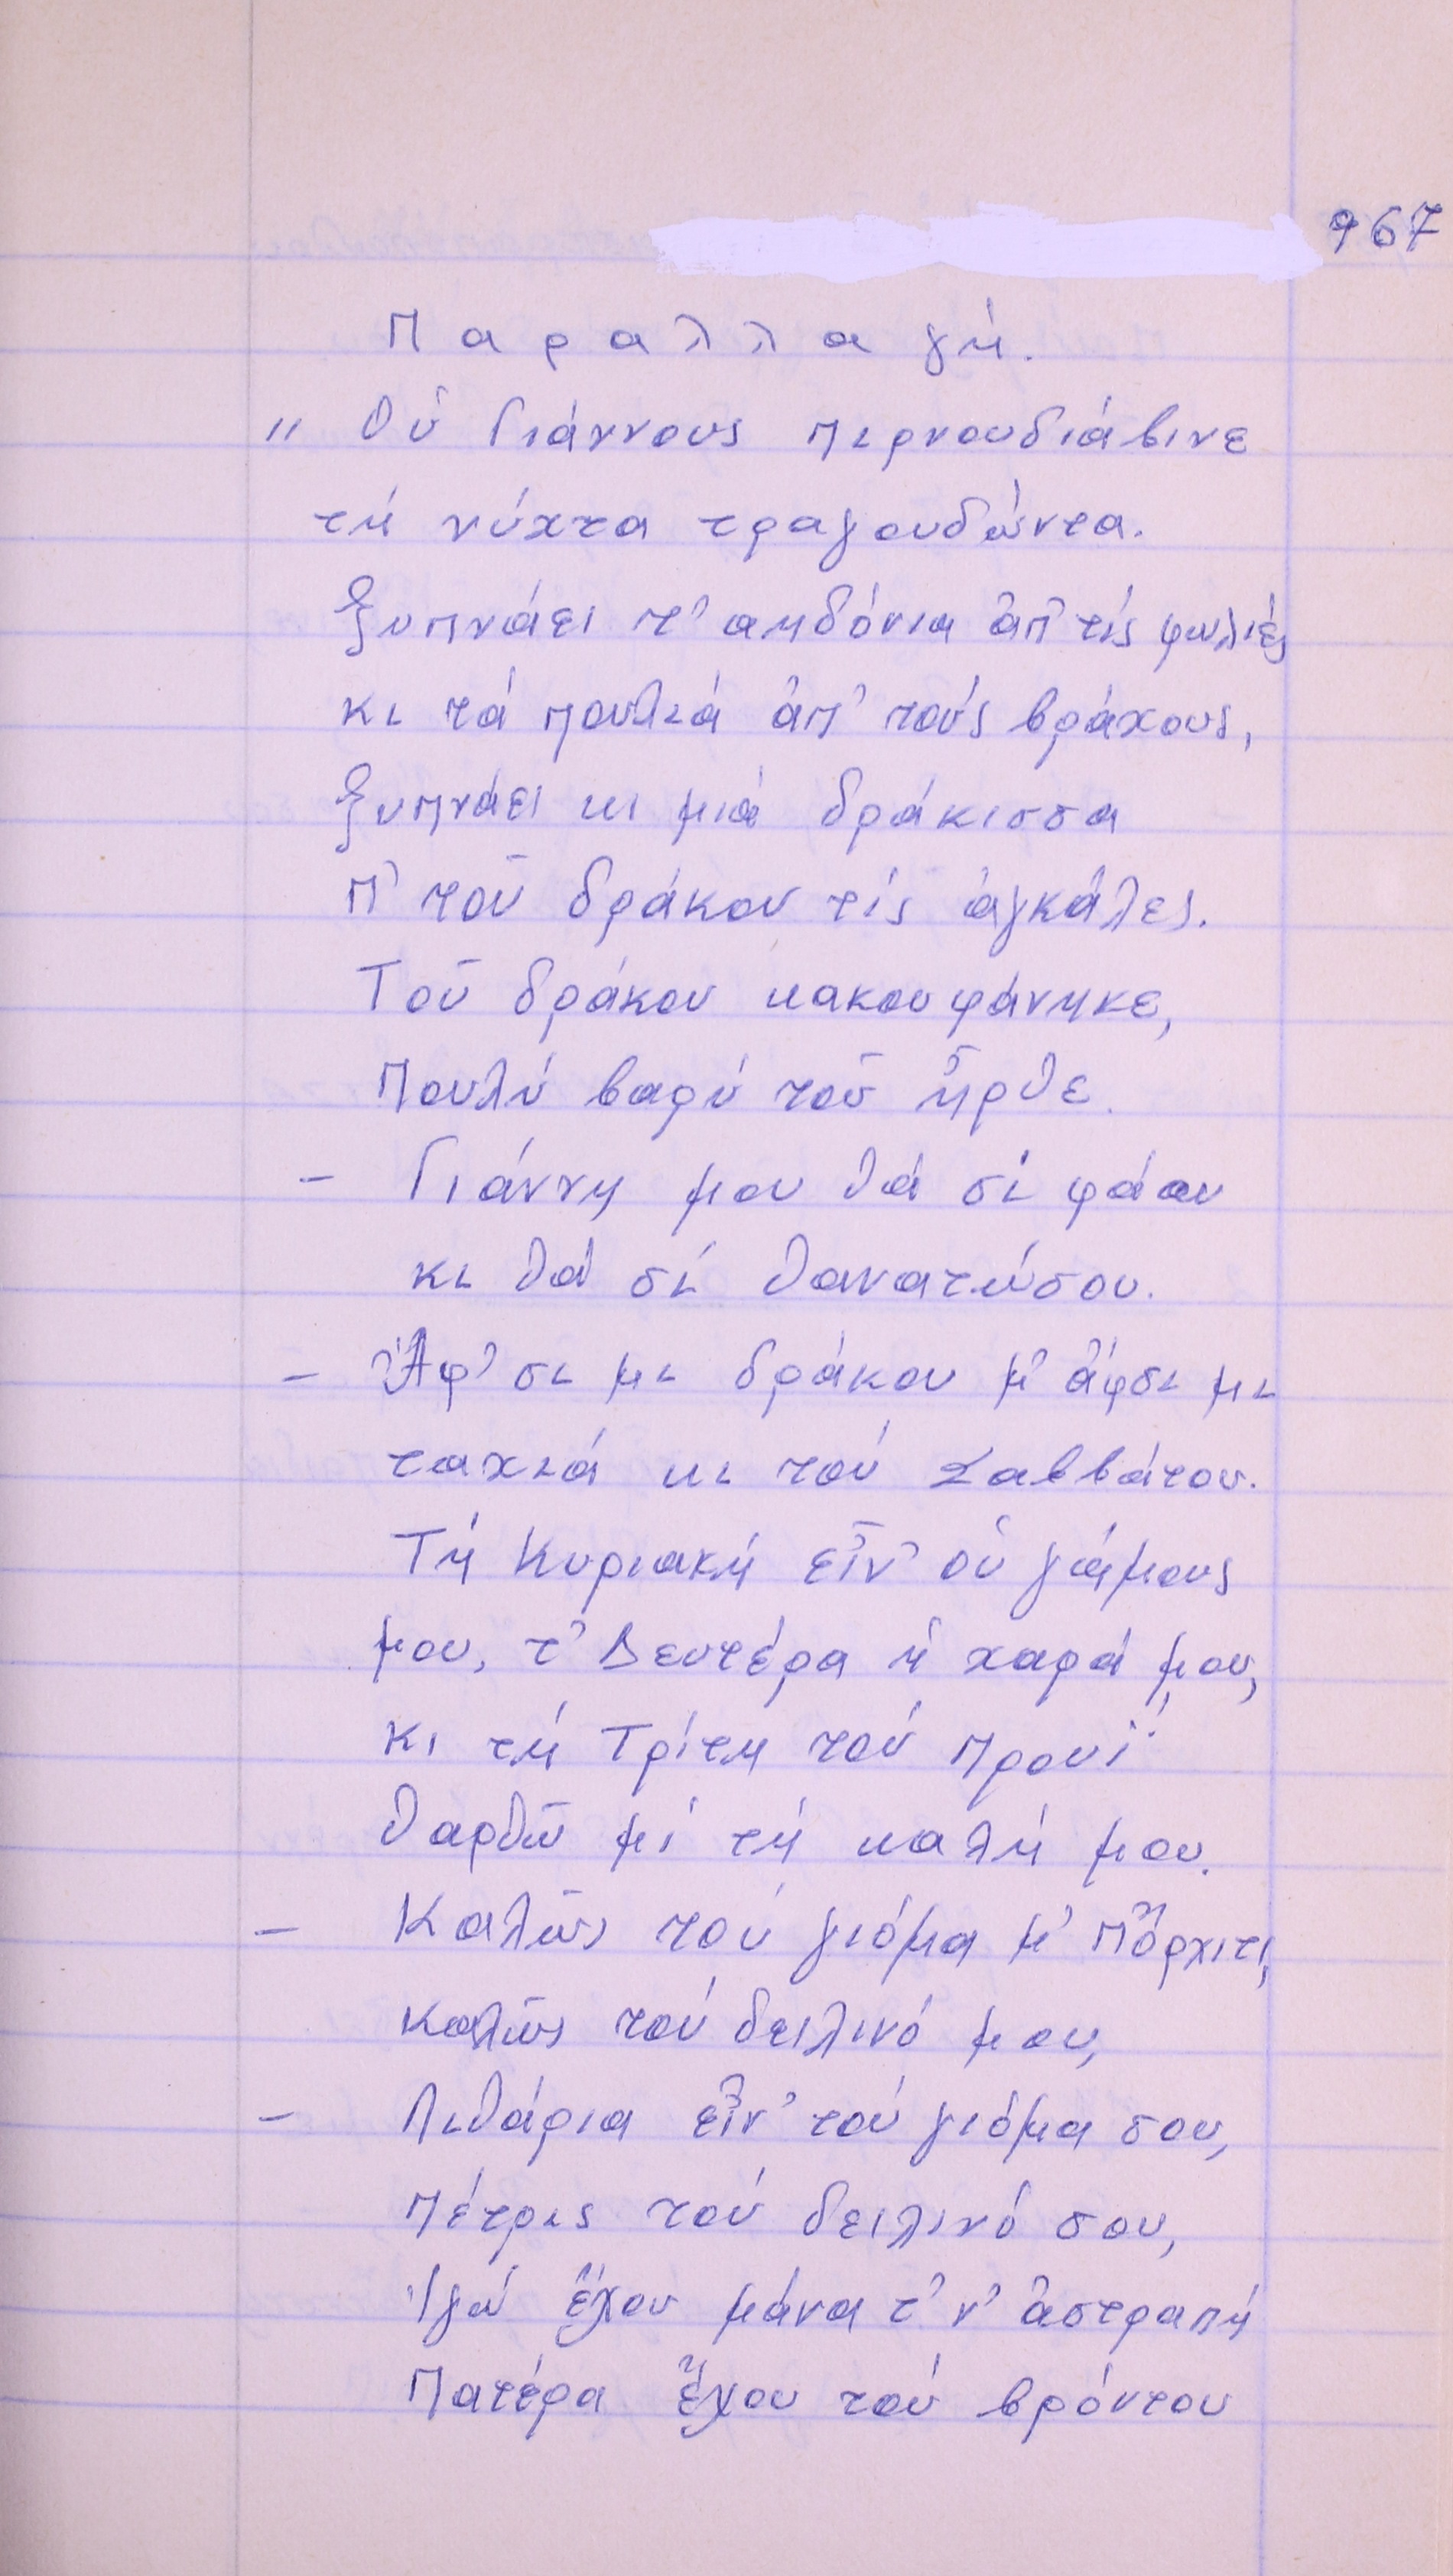 967
Παραλλαγή.
" Οὑ Γιάννους πιρνουδιάβινε
τή νύχτα τραγουδώντα.
Ξυπνάει τ' αηδόνια ἀπ' τίς φωλιές
κι τά πουλιά ἀπ' τούς βράχους,
ξυπνάει κι μιά δράκισσα
π' τοῦ δράκου τίς ἀγκάλες.
Τοῦ δράκου κακουφάνηκε,
πουλύ βαρύ τοῦ ἦρθε.
– Γιάννη μου θά σί φάου
κι θά σί θανατώσου.
– Ἄφ' σι μι δράκου μ' ἄφσι μι
ταχιά κι τού Σαββάτου.
Τή Κυριακή εἶν' οὑ γάμους
μου, τ' Δευτέρα ἡ χαρά μου,
κι τή Τρίτη τού προυΐ
θαρθῶ μί τή καλή μου.
– Καλῶς τού γιόμα μ' πὄρχιτι,
καλῶς τού δειλινό μου,
– Λιθάρια εἶν' τού γιόμα σου,
πέτρις τού δειλινό σου,
Ἰγώ ἔχου μάνα τ' ν' ἀστραπή
Πατέρα ἔχου τού βρόντου